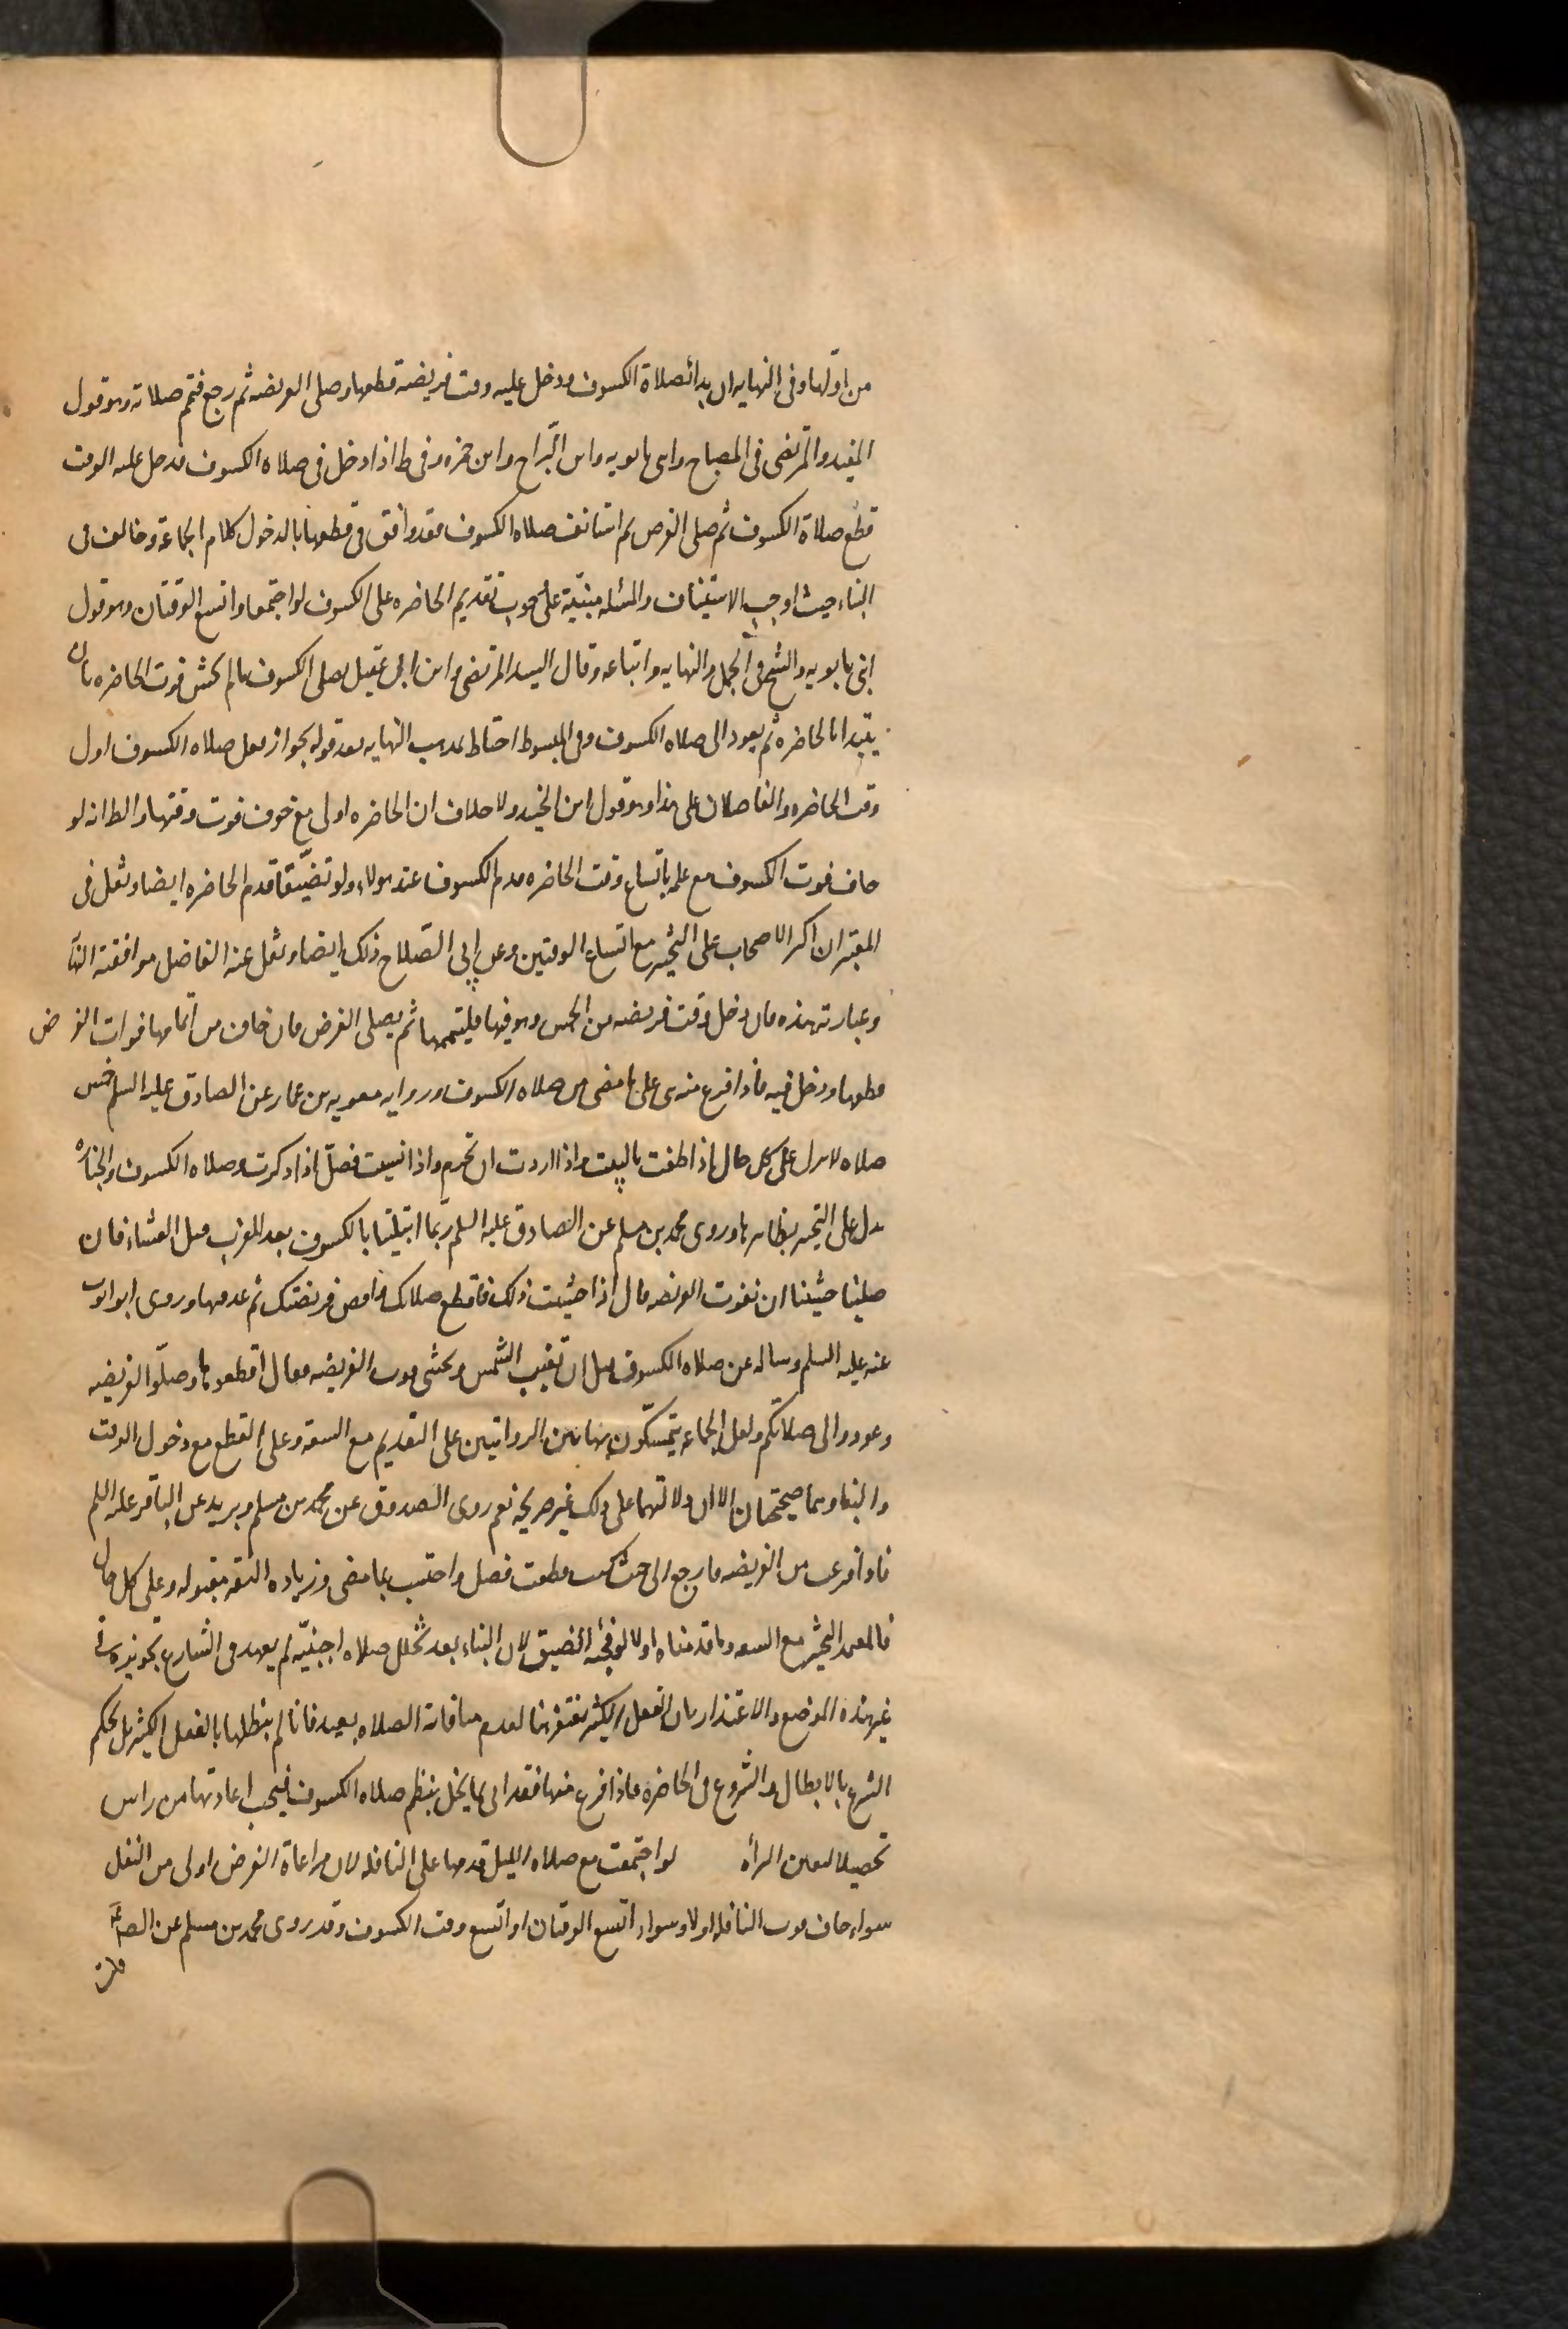 من اولها وفى النهايه ان بدا بصلاة الكسوف ودخل عليه وقت فريضة قطعها وصلى الفريضه ثم رجع فتمم صلاته وهو قول
المفيد والمرتضى فى المصباح وابنى بابويه وابن البراج وابن حمزه وفى ط اذا دخل فى صلاه الكسوف فدخل عليه الوقت
قطع صلاة الكسوف ثم صلى الفرض ثم استانف صلاه الكسوف فقد وافق فى قطعها بالدخول كلام الجماعة وخالف فى
البناء حيث اوجب الاستيناف والمسئله مبنيّة على وجوب تقديم الحاضره على الكسوف لو اجتمعا واتسع الوقتان وهو قول
ابنى بابويه والشيخ فى الجمل والنهايه واتباعه وقال السيد المرتضى وابن ابى عقيل يصلى الكسوف ما لم يخش فوت الحاضره فان
يبتدا بالحاضره ثم يعود الى صلاه الكسوف وفى المبسوط احتاط بمذهب النهايه بعد قوله بجواز فعل صلاه الكسوف اول
وقت الحاضره والفاضلان على هذا وهو قول ابن الجنيد ولا خلاف ان الحاضره اولى مع خوف فوت وقتها والظ انه لو
خاف فوت الكسوف مع علمه باتساع وقت الحاضره قدم الكسوف عند هولاء ولو تضيّقا قدم الحاضره ايضا ونقل فى
المعتبر ان اكثر الاصحاب على التخيير مع اتساع الوقتين وعن ابى الصّلاح ذلك ايضا ونقل عنه الفاضل موافقة النها
وعبارته هذه فان دخل وقت فريضه من الخمس وهو فيها فليتممها ثم يصلى الفرض فان خاف من اتمامها فوات الفرض
قطعها ودخل فيه فاذا فرغ منه بنى على ما مضى من صلاه الكسوف وروايه معويه بن عمار عن الصادق عليه السلم خمس
صلاه لا تترك على كل حال اذا طفت بالبيت واذا اردت ان تحرم واذا نسيت فصلّ اذا ذكرت وصلاه الكسوف والجنازه
تدل على التخيير بظاهرها وروى محمد بن مسلم عن الصادق عليه السلم ربّما ابتلينا بالكسوف بعد المغرب قبل العشاء فان
صلينا خشينا ان تفوت الفريضه قال اذا خشيت ذلك فاقطع صلاتك واقض فريضتك ثم عد فيها وروى ابو ايوب
عنه عليه السلم وساله عن صلاه الكسوف قبل ان تغيب الشمس ويخشى فوت الفريضه فقال اقطعوها وصلّوا الفريضه
وعودوا الى صلاتكم ولعل الجماعه يتمسّكون بهاتين الروايتين على التقديم مع السعة وعلى القطع مع دخول الوقت
والبنا وهما صحيحتان الا ان دلالتهما على ذلك غير صريحه نعم روى الصدوق عن محمد بن مسلم وبريد عن الباقر عليه السلم
فاذا فرغت من الفريضه فارجع الى حيث كنت قطعت فصل واحتسب بما مضى وزياده الثقه مقبوله وعلى كل حال
فالمعتمد التخيير مع السعه وما قدمناه اولا لو فجئه الضيق لان البناء بعد تخلل صلاه اجنبيّه لم يعهد فى الشارع تجويزه فى
غير هذه الموضع والاعتذار بان الفعل الكثير يغتفر هنا لعدم منافاته الصلاه بعيد فانا لم نبطلها بالفعل الكثير بل بحكم
الشرع بالابطال والشروع فى الحاضره فاذا فرغ منها فقد اتى بما يخل بنظم صلاه الكسوف فيجب اعادتها من راس
تحصيلا ليقين البراه لو اجتمعت مع صلاه الليل قدمها على النافله لان مراعاة الفرض اولى من النفل
سواء خاف فوت النافله اولا وسواء اتسع الوقتان او اتسع وقت الكسوف وقد روى محمد بن مسلم عن الصا
قلت